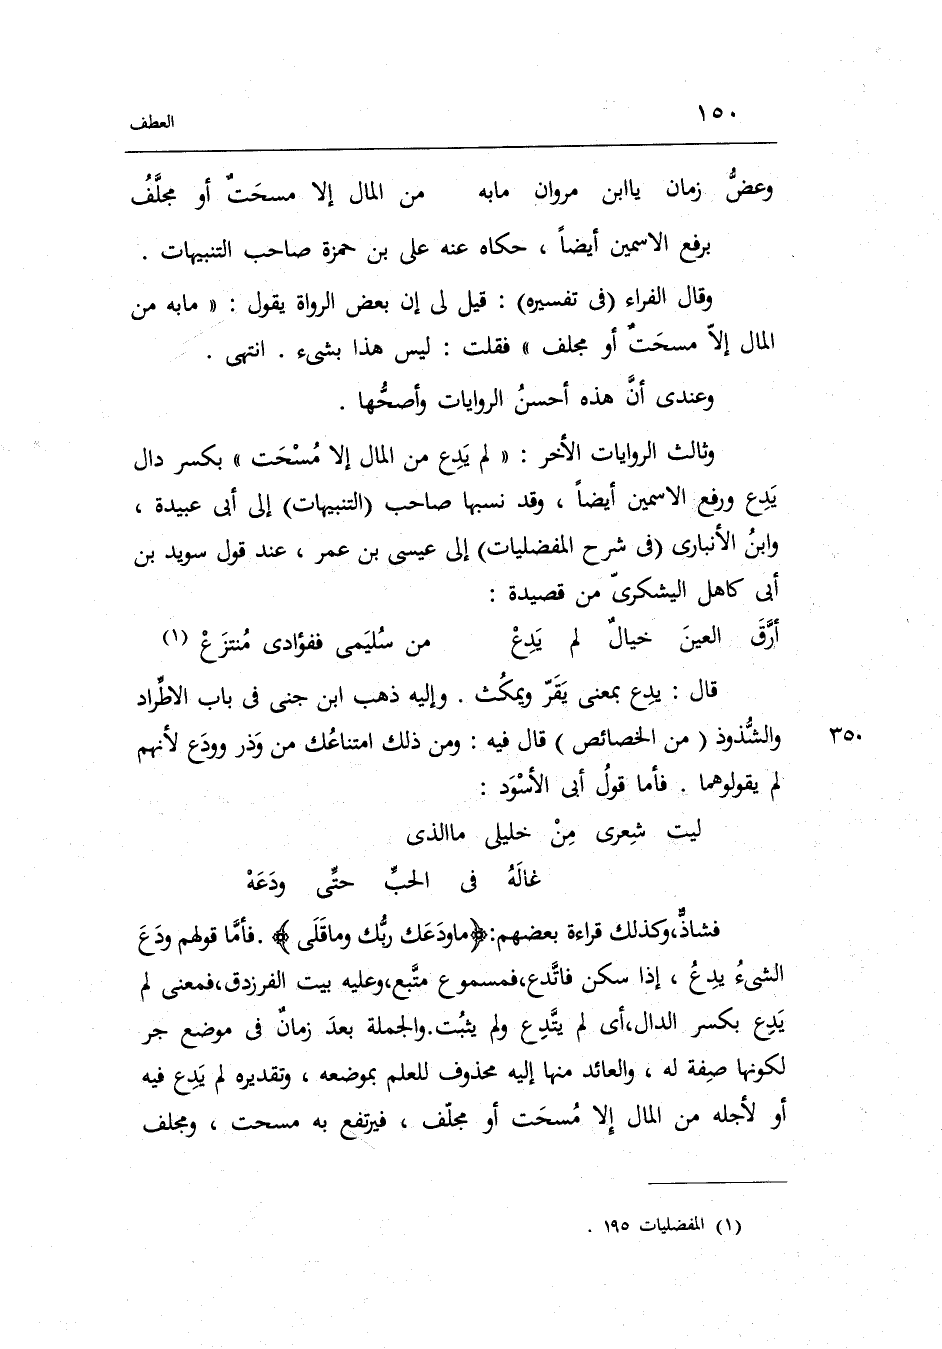 ١٥٠
العطف
وعضُّ زمان ياابن مروان مابه من المال إلا مسحَتٌ أو مجلَّفُ
برفع الاسمين أيضاً ، حكاه عنه على بن حمزة صاحب التنبيهات .
وقال الفراء (فى تفسيره) : قيل لى إن بعض الرواة يقول : « مابه من
المال إلاّ مسحَتٌ أو مجلف » فقلت : ليس هذا بشىء . انتهى .
وعندى أنَّ هذه أحسنُ الروايات وأصحُّها .
وثالث الروايات الأخر : « لم يَدِع من المال إلا مُسْحَت » بكسر دال
يَدِع ورفع الاسمين أيضاً ، وقد نسبها صاحب (التنبيهات) إلى أبى عبيدة ،
وابنُ الأنبارى (فى شرح المفضليات) إلى عيسى بن عمر ، عند قول سويد بن
أبى كاهل اليشكرىّ من قصيدة :
أرَّقَ العينَ خيالٌ لم يَدِعْ من سُليَمى ففؤادى مُنتزَعْ (١)
قال : يدِع بمعنى يَقَرّ ويمكُث . وإليه ذهب ابن جنى فى باب الاطِّراد
والشُّذوذ ( من الخصائص ) قال فيه : ومن ذلك امتناعُك من وَذر وودَع لأنهم
٣٥٠
لم يقولوهما . فأما قولُ أبى الأسْوَد :
ليت شِعرى مِنْ خليلى ماالذى
غالَهُ فى الحبِّ حتَّى ودَعَهْ
فشاذٌّ،وكذلك قراءة بعضهم:﴿ماودَعَك ربُّك وماقَلَى ﴾ .فأمَّا قولهم ودَعَ
الشىءُ يدِعُ ، إذا سكن فاتَّدع،فمسموع متَّبع،وعليه بيت الفرزدق،فمعنى لم
يَدِع بكسر الدال،أى لم يتَّدِع ولم يثبُت.والجملة بعدَ زمانٌ فى موضع جر
لكونها صِفة له ، والعائد منها إليه محذوف للعلم بموضعه ، وتقديره لم يَدِع فيه
أو لأجله من المال إلا مُسحَت أو مجلّف ، فيرتفع به مسحت ، ومجلف
(١) المفضليات ١٩٥ .